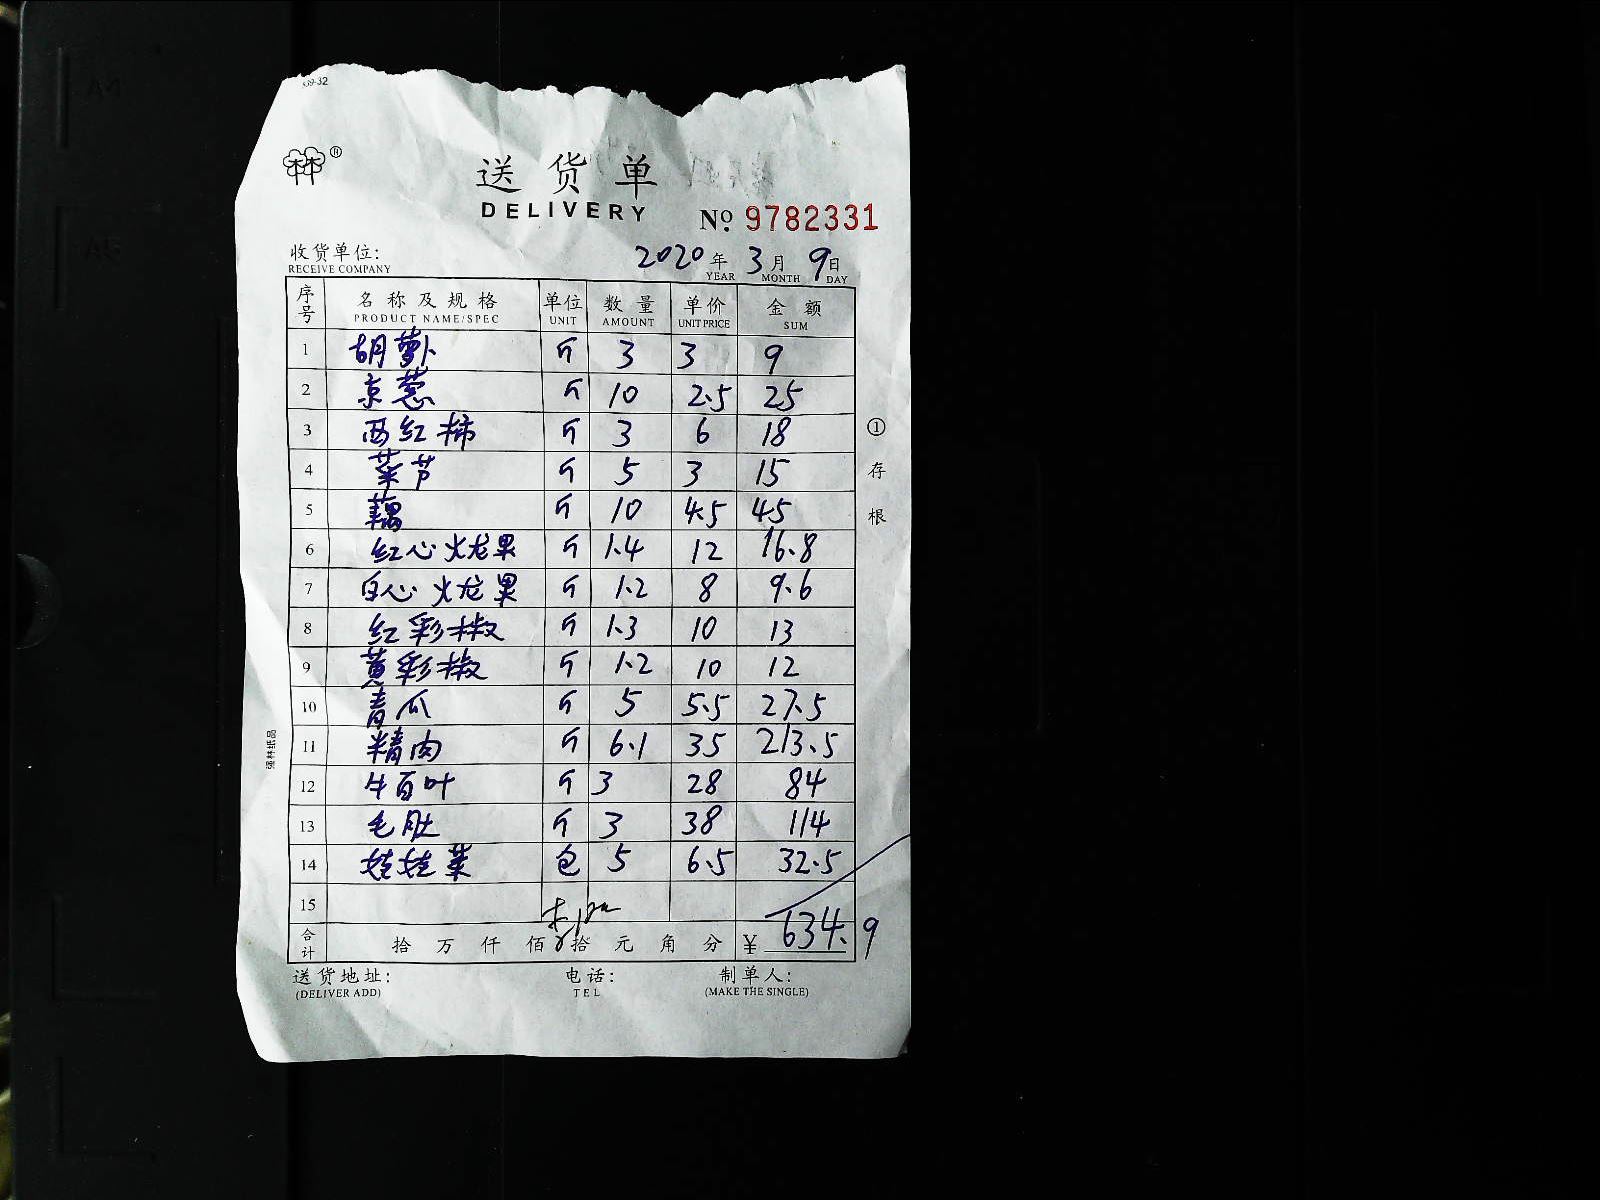 69-32
林®
送货单
DELIVERY № 9782331
收货单位: 2020年 3月 9日
RECEIVE COMPANY YEAR MONTH DAY
序号 名称及规格 单位 数量 单价 金额
PRODUCT NAME/SPEC UNIT AMOUNT UNIT PRICE SUM
1 胡萝卜 斤 3 3 9
2 京葱 斤 10 2.5 25
3 西红柿 斤 3 6 18
4 菜芦 斤 5 3 15
5 藕 斤 10 4.5 45
6 红心火龙果 斤 1.4 12 16.8
7 白心火龙果 斤 1.2 8 9.6
8 红彩椒 斤 1.3 10 13
9 黄彩椒 斤 1.2 10 12
10 青瓜 斤 5 5.5 27.5
11 精肉 斤 6.1 35 213.5
12 牛百叶 斤 3 28 84
13 毛肚 斤 3 38 114
14 娃娃菜 包 5 6.5 32.5
15
合计 拾 万 仟 佰 拾 元 角 分 ¥ 634.9
送货地址: 电话: 制单人:
(DELIVER ADD) TEL (MAKE THE SINGLE)
①存根
强林纸品